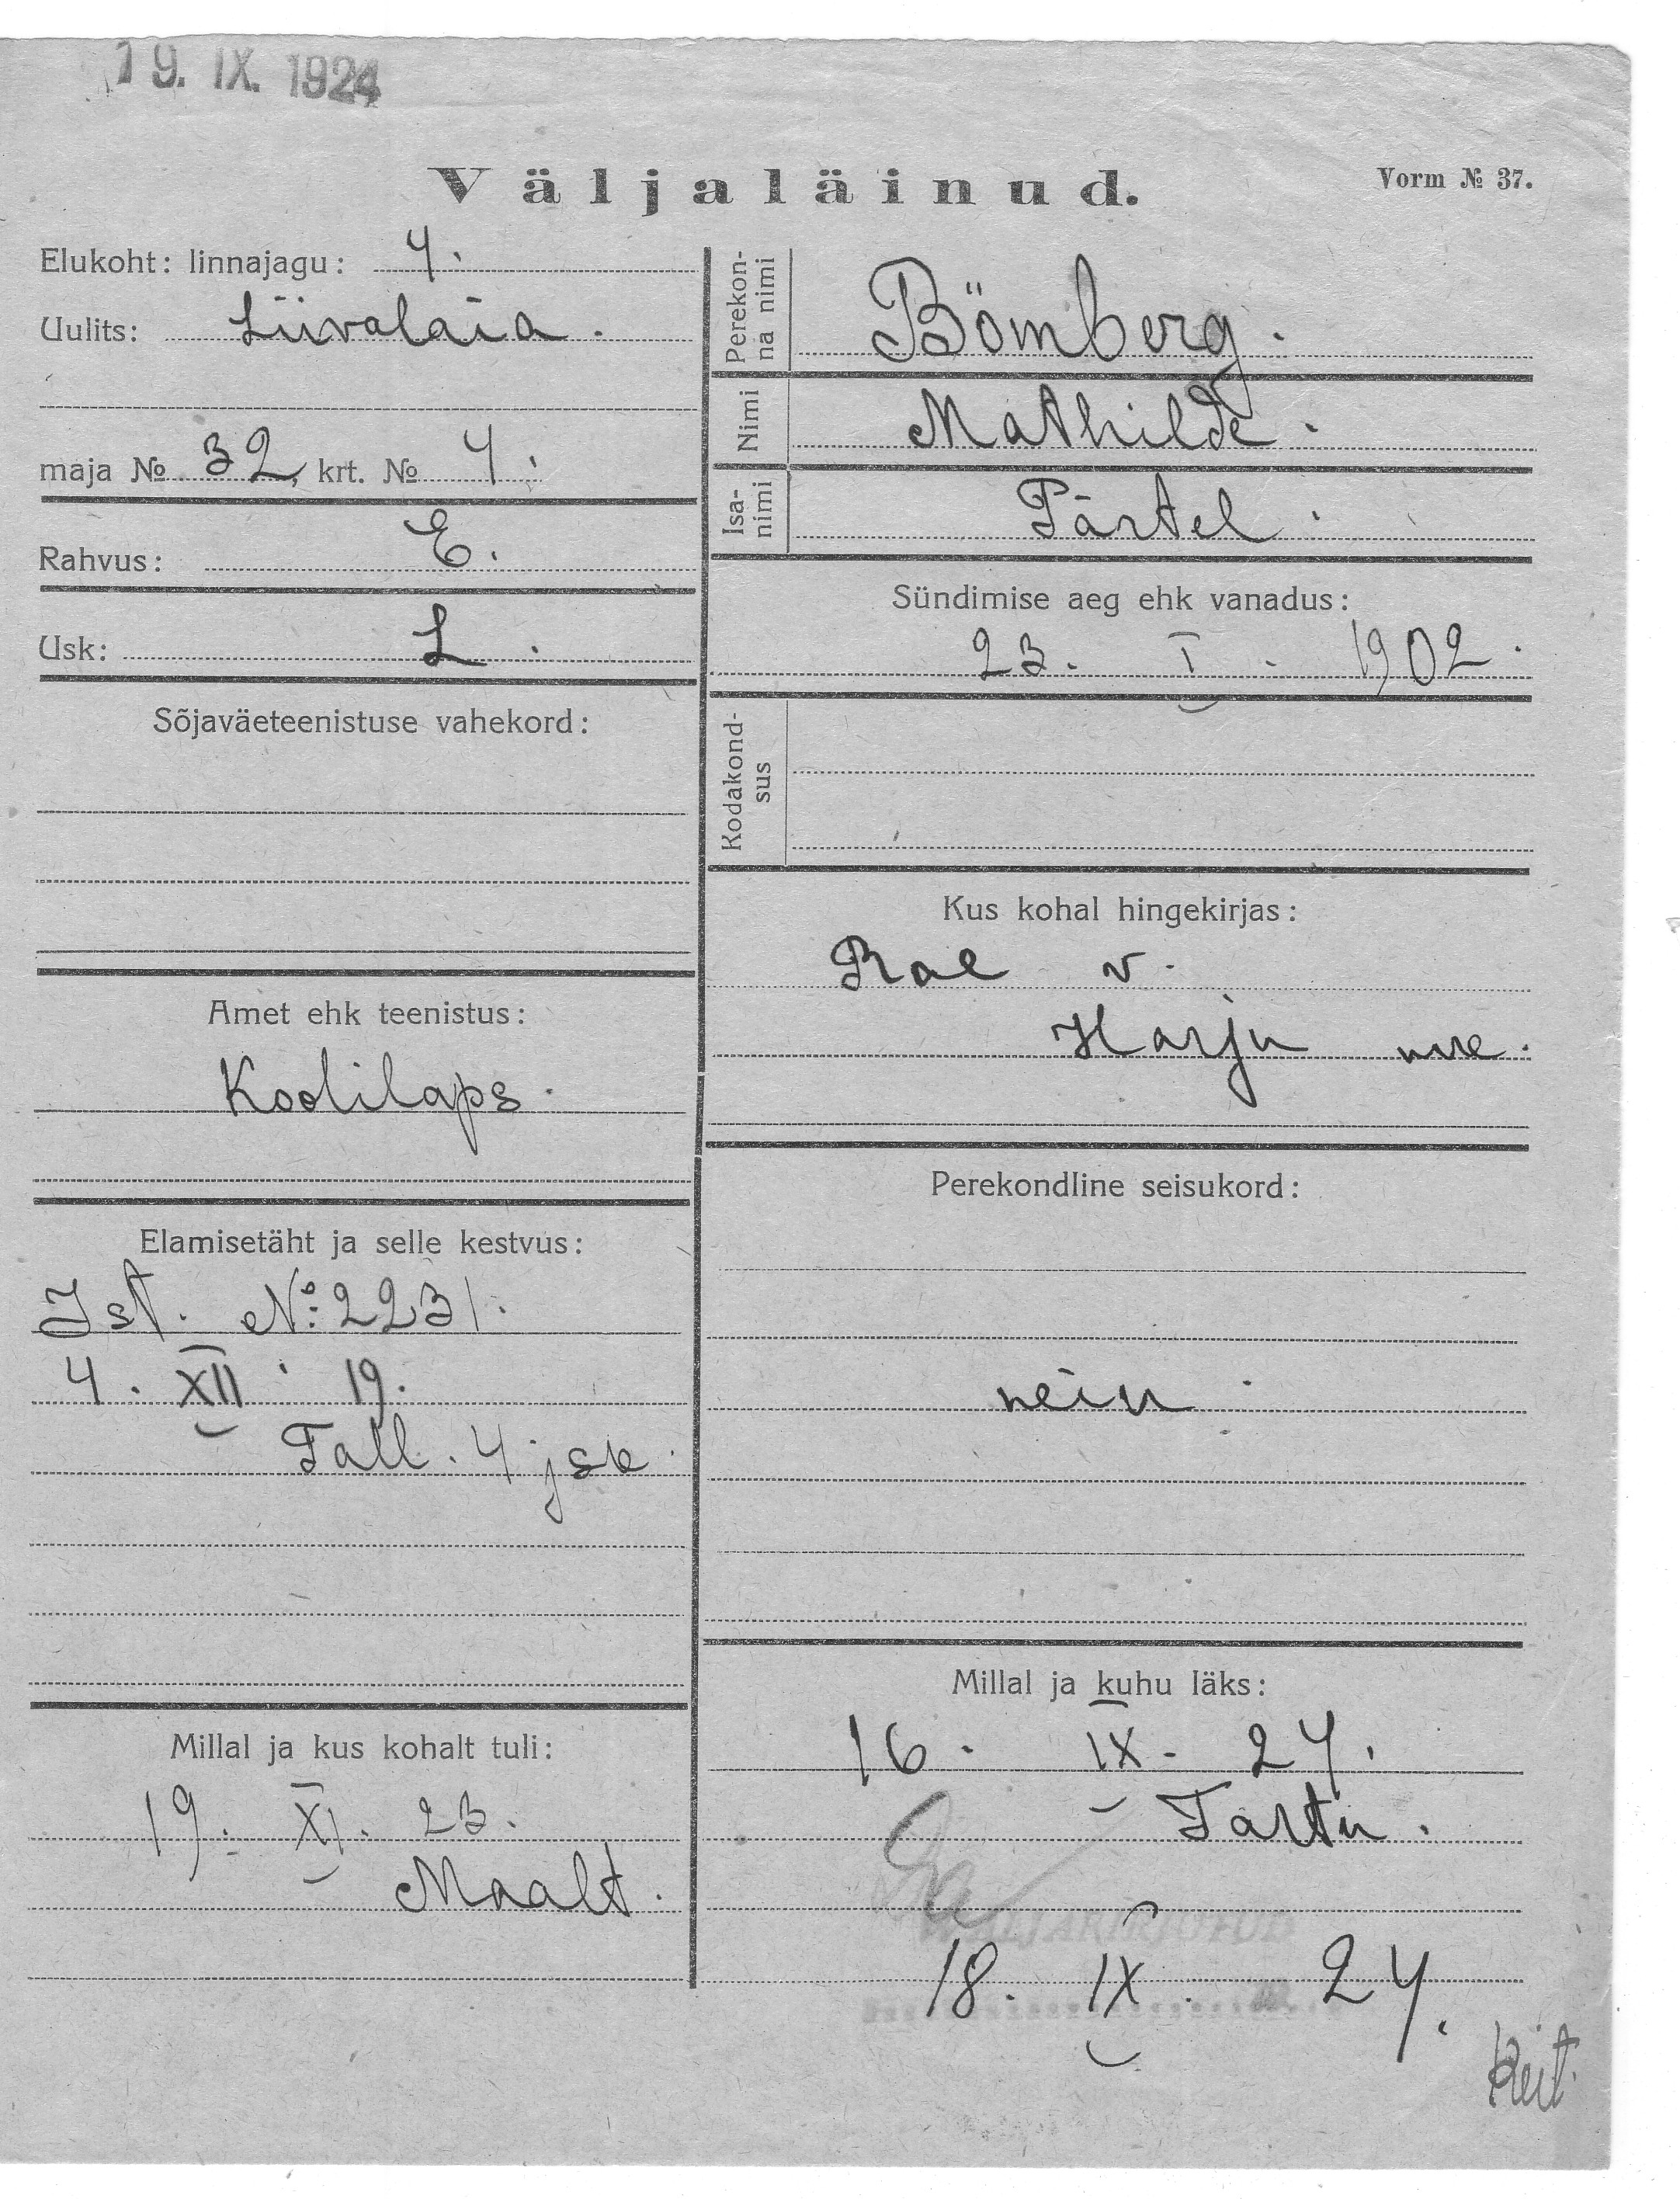 19. IX. 1924
Väljaläinud.
Vorm № 37.
Elukoht: linnajagu: 4.
Uulits: Liivalaia.
maja № 32, krt. № 4.
Rahvus: E.
Usk: L.
Sõjaväeteenistuse vahekord:
Amet ehk teenistus:
Koolilaps.
Elamisetäht ja selle kestvus:
Ist. №: 2231.
4. XII. 19.
Tall. 4 jsk.
Millal ja kus kohalt tuli:
19. XI. 23.
Maalt.
Perekon-
na nimi
Bömberg.
Nimi
Mathilde.
Isa-
nimi
Pärtel.
Sündimise aeg ehk vanadus:
23. I. 1902.
Kodakond-
sus
Kus kohal hingekirjas:
Rae v.
Harju
Perekondline seisukord:
nein.
Millal ja kuhu läks:
16. IX. 24.
Tartu.
VÄLJAKIRJUTUD
18. IX. 24.